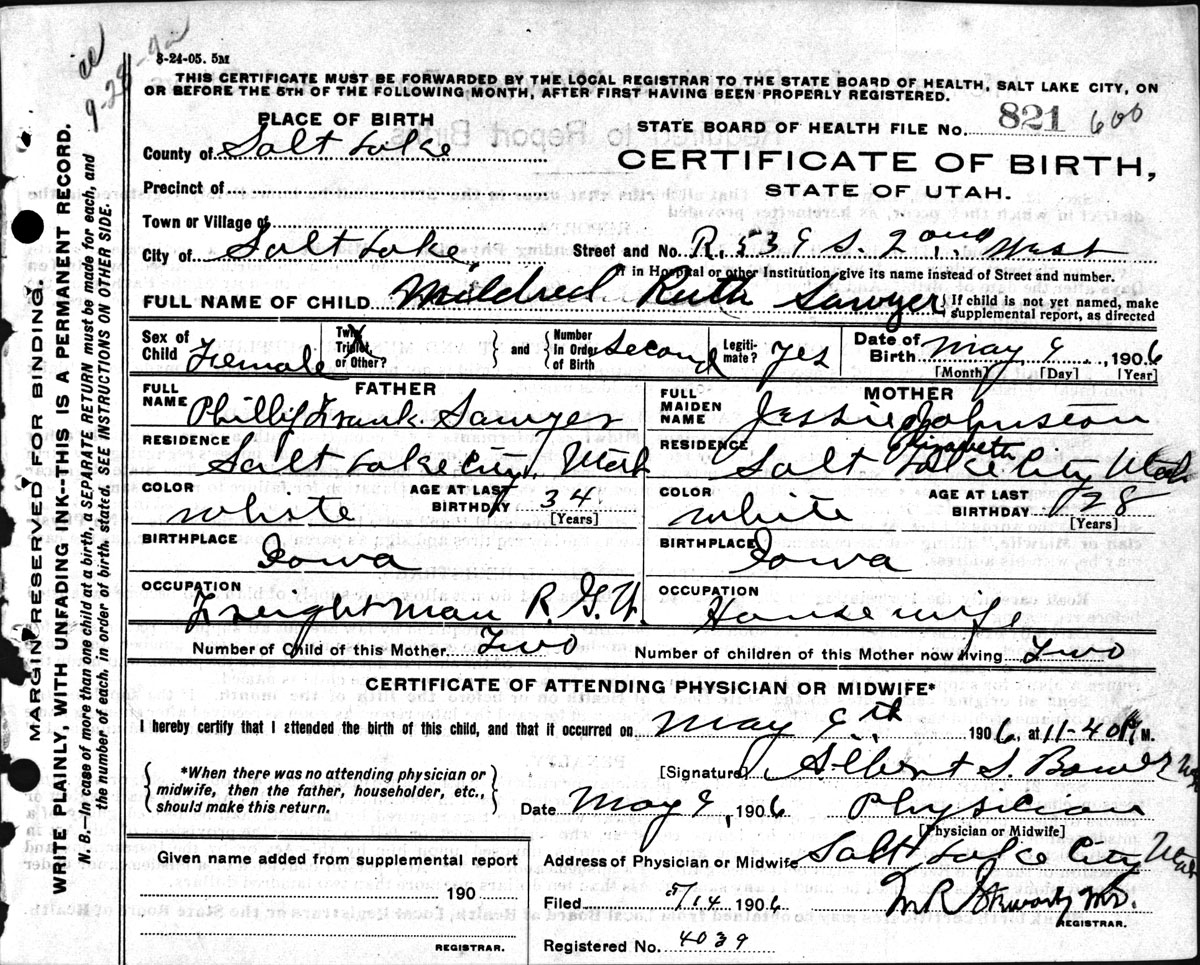 8-24-05. 5M
THIS CERTIFICATE MUST BE FORWARDED BY THE LOCAL REGISTRAR TO THE STATE BOARD OF HEALTH, SALT LAKE CITY, ON
OR BEFORE THE 5TH OF THE FOLLOWING MONTH, AFTER FIRST HAVING BEEN PROPERLY REGISTERED.
PLACE OF BIRTH
STATE BOARD OF HEALTH FILE No. 821 600
County of Salt Lake
CERTIFICATE OF BIRTH,
Precinct of
STATE OF UTAH.
Town or Village of
City of Salt Lake Street and No. R. 539 S. 2ond West
If in Hospital or other Institution, give its name instead of Street and number.
FULL NAME OF CHILD Mildred Ruth Sawyer { If child is not yet named, make
supplemental report, as directed
Sex of Child Female Twin Triplet or Other? X } and { Number in Order of Birth second Legiti- mate? Yes Date of Birth May 9, 1906
[Month] [Day] [Year]
FATHER
FULL NAME Phillip Frank Sawyer
RESIDENCE
Salt Lake City, Utah
COLOR white AGE AT LAST BIRTHDAY 34
[Years]
BIRTHPLACE Iowa
OCCUPATION
Freight Man R.G.W.
MOTHER
FULL MAIDEN NAME Jessie Johnston
Elizabeth
RESIDENCE
Salt Lake City Utah
COLOR white AGE AT LAST BIRTHDAY 28
[Years]
BIRTHPLACE Iowa
OCCUPATION
House wife
Number of Child of this Mother Two Number of children of this Mother now living Two
CERTIFICATE OF ATTENDING PHYSICIAN OR MIDWIFE*
I hereby certify that I attended the birth of this child, and that it occurred on May 9th 1906, at 11-40 M.
{ *When there was no attending physician or
midwife, then the father, householder, etc.,
should make this return. }
[Signature] Albert S. Bower
Date May 9, 1906 Physician
[Physician or Midwife]
Given name added from supplemental report
190
REGISTRAR.
Address of Physician or Midwife Salt Lake City Utah
Filed 5/14 1906
REGISTRAR.
Registered No. 4039
MARGIN RESERVED FOR BINDING.
WRITE PLAINLY, WITH UNFADING INK--THIS IS A PERMANENT RECORD.
N. B.—In case of more than one child at a birth, a SEPARATE RETURN must be made for each, and
the number of each, in order of birth stated. SEE INSTRUCTIONS ON OTHER SIDE.